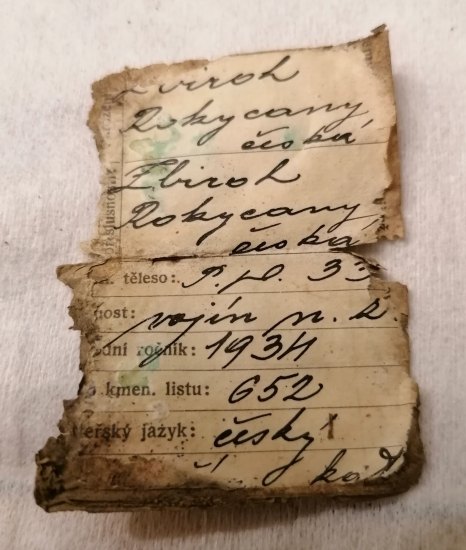 Zbiroh
Rokycany
česká
Zbiroh
Rokycany
česká
těleso: P. pl. 33
nost: vojín n. z.
dní ročník: 1934
kmen. listu: 652
teřský jazyk: český